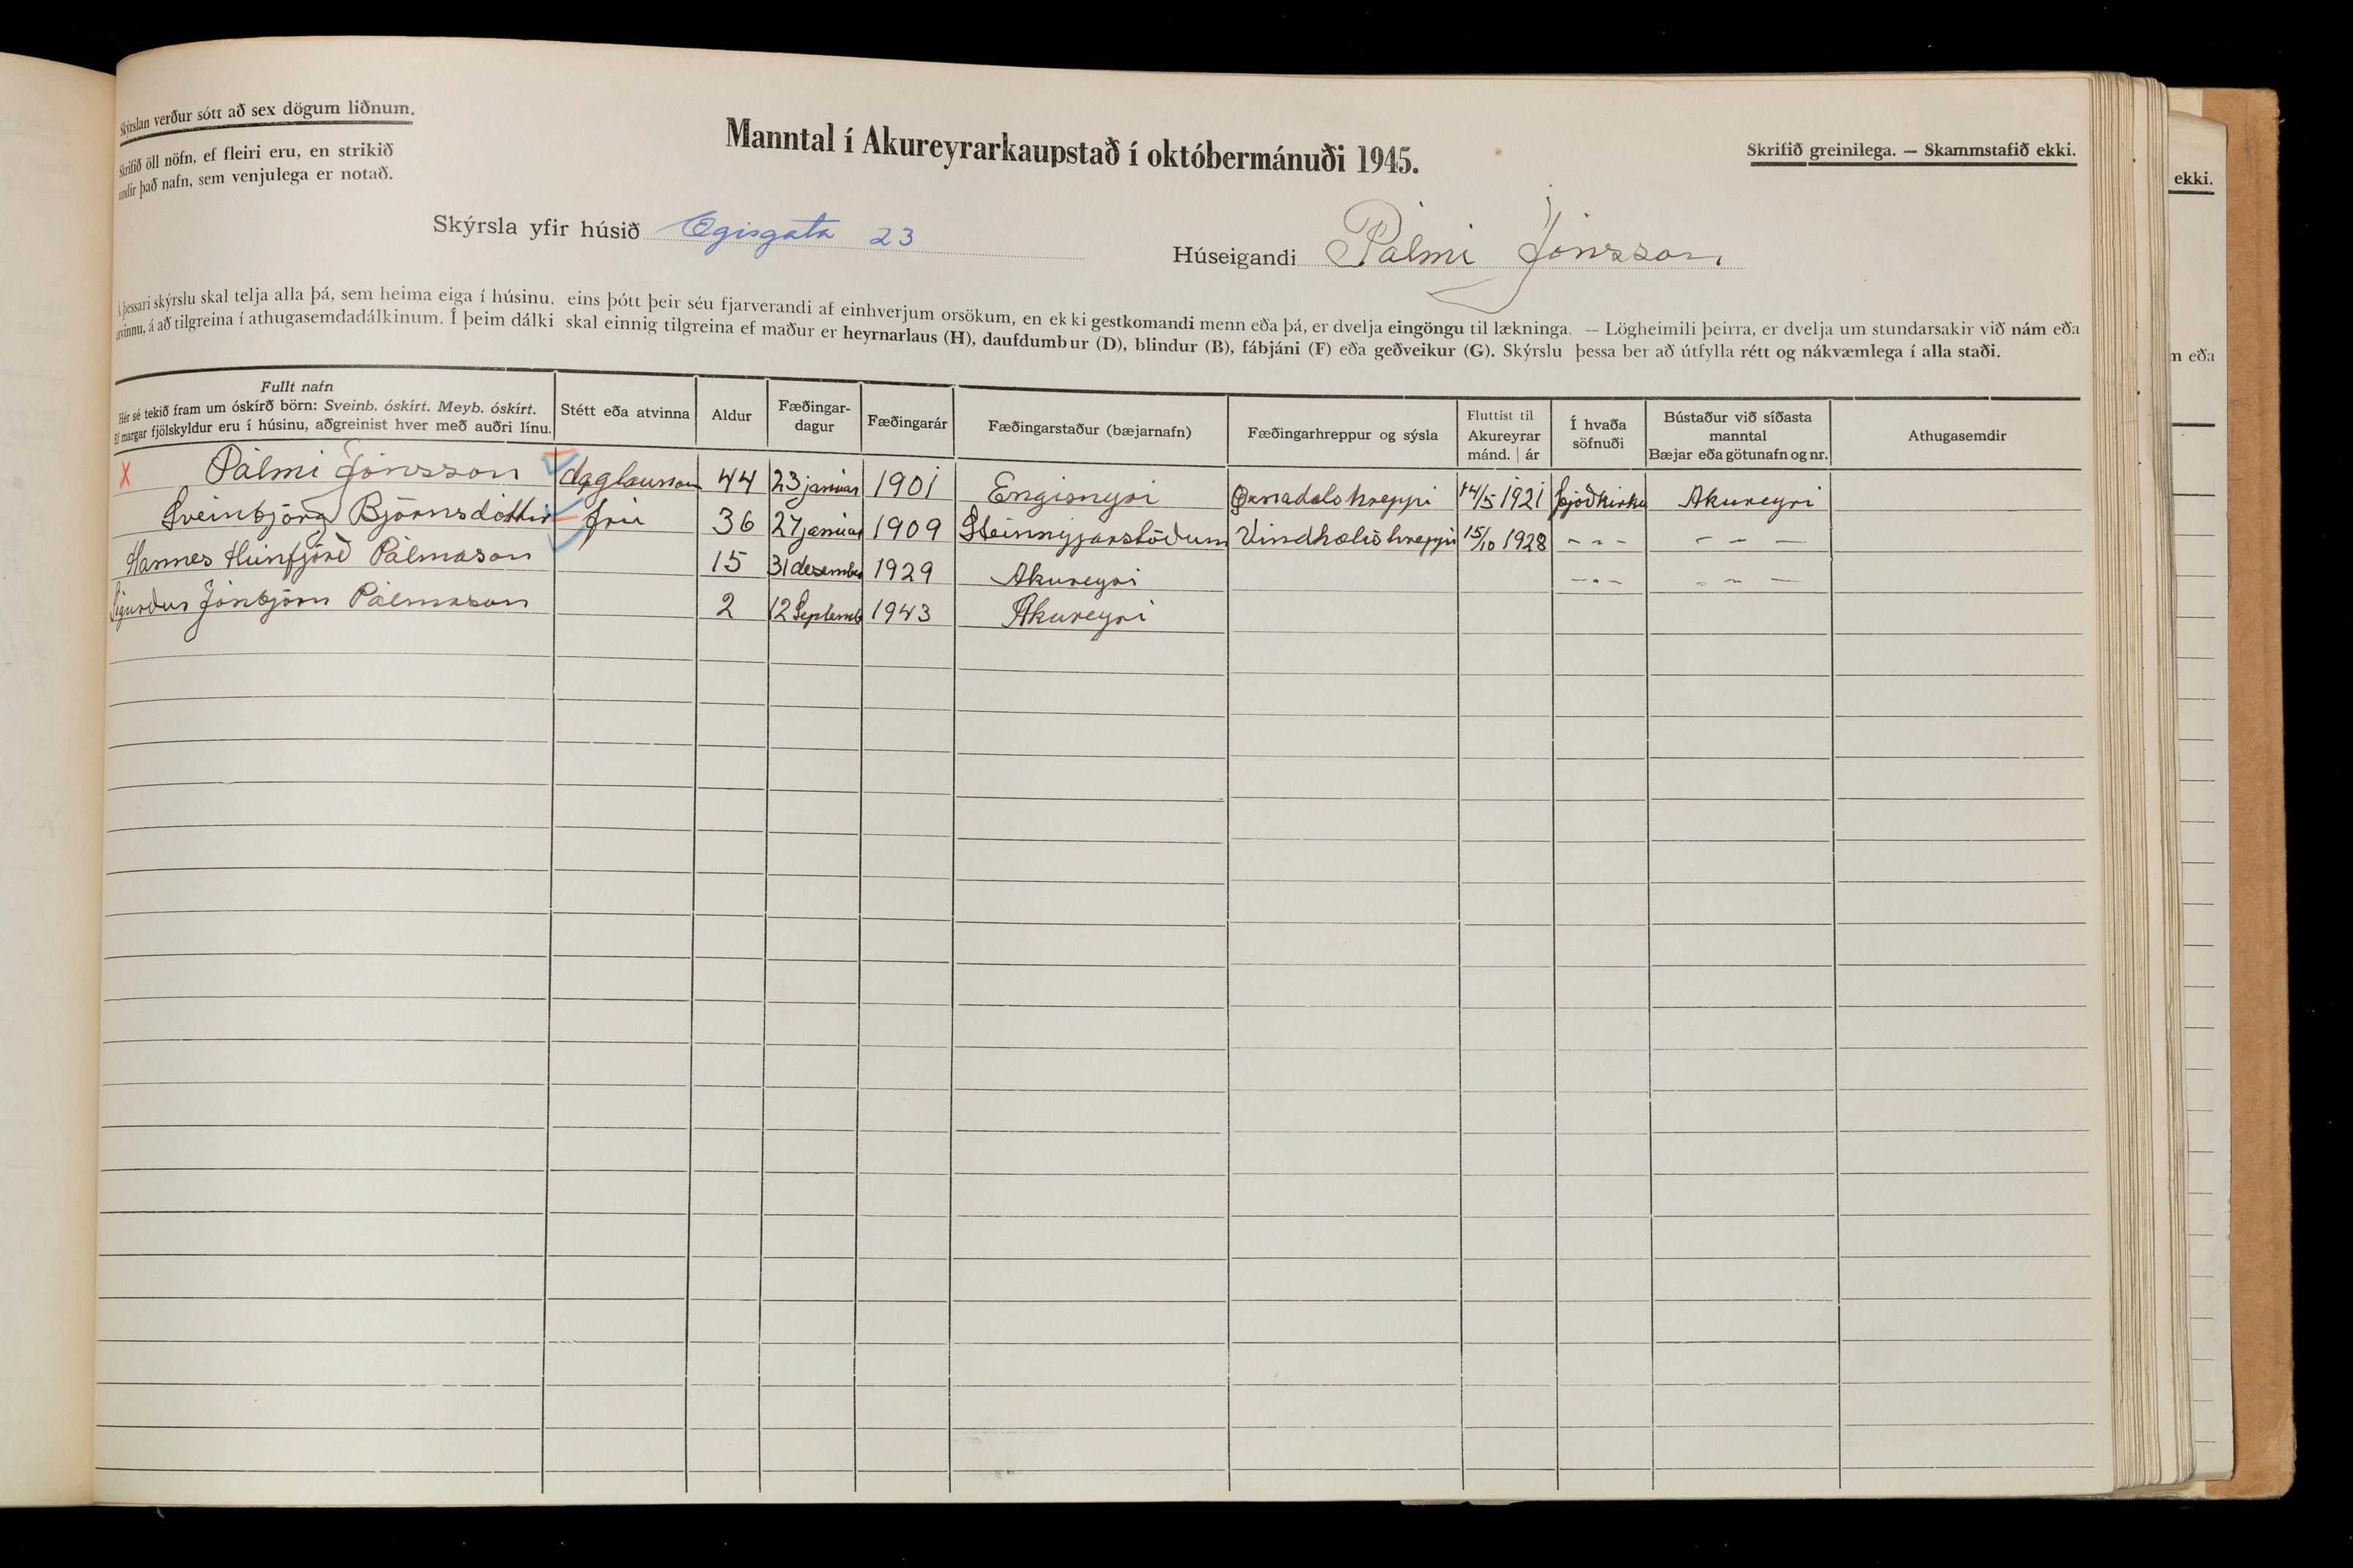 Skýrslan verður sótt að sex dögum liðnum.
Skrifið öll nöfn, ef fleiri eru, en strikið
undir það nafn, sem venjulega er notað.
Manntal í Akureyrarkaupstað í októbermánuði 1945.
Skrifið greinilega. — Skammstafið ekki.
ekki.
Skýrsla yfir húsið Ægisgata 23
Húseigandi Pálmi Jónsson
Í þessari skýrslu skal telja alla þá, sem heima eiga í húsinu, eins þótt þeir séu fjarverandi af einhverjum orsökum, en ekki gestkomandi menn eða þá, er dvelja eingöngu til lækninga. — Lögheimili þeirra, er dvelja um stundarsakir við nám eða
atvinnu, á að tilgreina í athugasemdadálkinum. Í þeim dálki skal einnig tilgreina ef maður er heyrnarlaus (H), daufdumbur (D), blindur (B), fábjáni (F) eða geðveikur (G). Skýrslu þessa ber að útfylla rétt og nákvæmlega í alla staði.
m eða
Fullt nafn
Hér sé tekið fram um óskírð börn: Sveinb. óskírt. Meyb. óskírt.
Ef margar fjölskyldur eru í húsinu, aðgreinist hver með auðri línu.
Stétt eða atvinna
Aldur
Fæðingar-
dagur
Fæðingarár
Fæðingarstaður (bæjarnafn)
Fæðingarhreppur og sýsla
Fluttist til
Akureyrar
mánd. | ár
Í hvaða
söfnuði
Bústaður við síðasta
manntal
Bæjar eða götunafn og nr.
Athugasemdir
X Pálmi Jónsson daglaunam 44 23 januar 1901 Engimyri Öxnadalshreppi 14/5 1921 þjóðkirkju Akureyri
Sveinbjörg Björnsdóttir frú 36 27 januar 1909 Steinnýjarstöðum Vindhælishreppi 15/10 1928 - - - - - -
Hannes Húnfjörð Pálmason 15 31 desember 1929 Akureyri - - - - - -
Sigurður Jónbjörn Pálmason 2 12 Septemb 1943 Akureyri